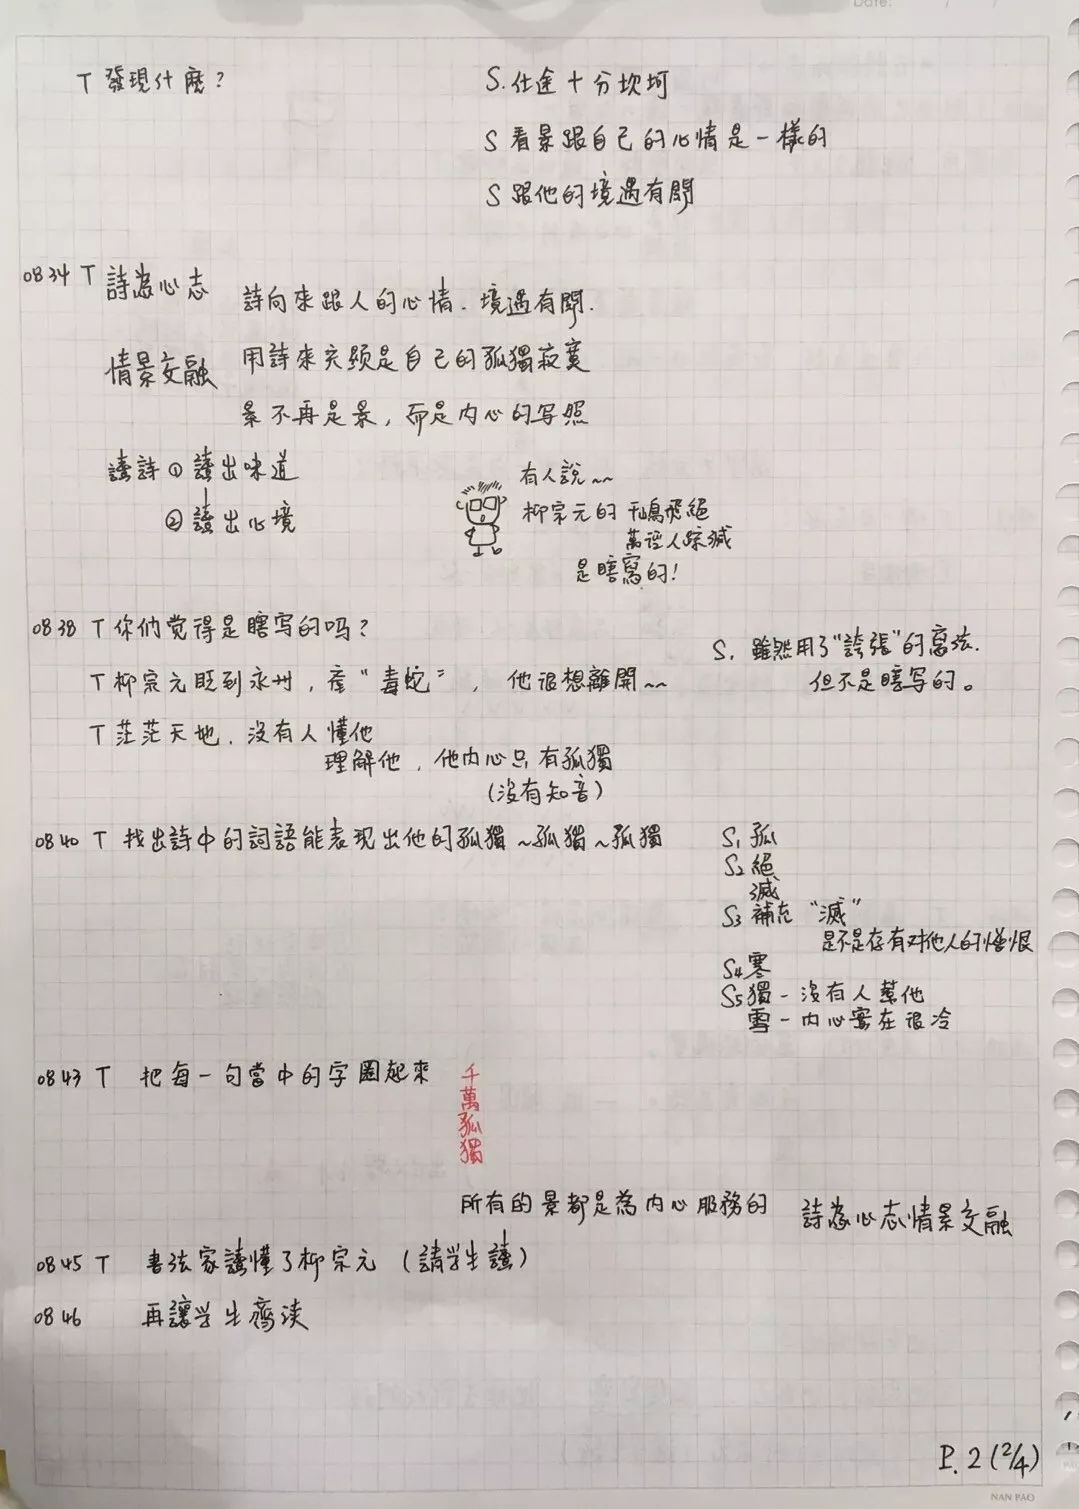 Date: / /
T 發現什麼？ S. 仕途十分坎坷
S 看景跟自己的心情是一樣的
S 跟他的境遇有關
0834 T 詩為心志 詩向來跟人的心情、境遇有關.
情景交融 用詩來突顕是自己的孤獨寂寞
景不再是景，而是内心的写照
讀詩 ① 讀出味道
② 讀出心境
有人說~~
柳宗元的 千鳥飛絕
萬徑人踪滅
是瞎寫的!
0838 T 你们觉得是瞎写的吗？
S. 雖然用了“誇張”的寫法.
但不是瞎写的。
T 柳宗元貶到永州，產“毒蛇”，他很想離開~~
T 茫茫天地，沒有人懂他
理解他，他内心只有孤獨
(沒有知音)
0840 T 找出詩中的詞語能表现出他的孤獨~孤獨~孤獨
S1 孤
S2 絕
滅
S3 補充 “滅”
是不是存有对他人的憎恨
S4 寒
S5 獨－沒有人幫他
雪－内心實在很冷
0843 T 把每一句當中的字圈起來
千
萬
孤
獨
所有的景都是為内心服務的 詩為心志情景交融
0845 T 書法家讀懂了柳宗元（請学生讀）
0846 再讓学生齊读
P. 2 (2/4)
NAN PAO